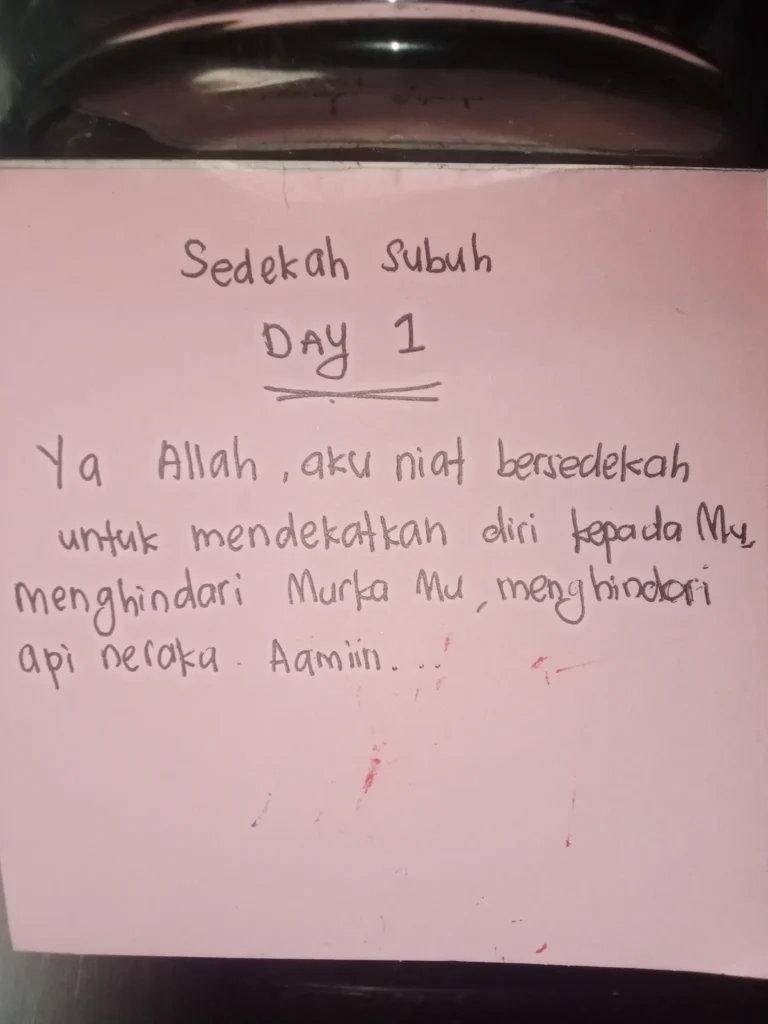 Sedekah Subuh
DAY 1
Ya Allah, aku niat bersedekah
untuk mendekatkan diri kepada Mu,
menghindari Murka Mu, menghindari
api neraka. Aamiin...